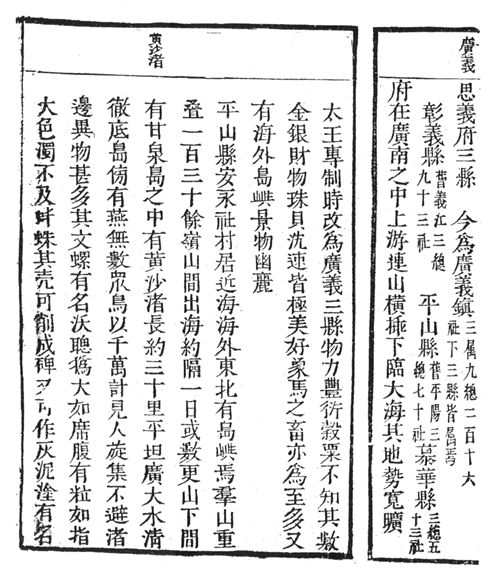 廣義
思義府三縣 今為廣義鎮 三属九總二百十六社下三縣皆属焉
彰義縣 舊義江三總九十三社 平山縣 舊平陽三總七十社 慕華縣 三總五十三社
府在廣南之中上游連山橫揷下臨大海其地勢寬曠
黃沙渚
太王專制時改為廣義三縣物力豐衍穀粟不知其數
金銀財物珠貝沈速皆極美好象馬之畜亦為至多又
有海外島嶼景物幽麗
平山縣安永社村居近海海外東北有島嶼焉羣山重
叠一百三十餘嶺山間出海約隔一日或数更山下間
有甘泉島之中有黃沙渚長約三十里平坦廣大水清
徹底島傍有燕無數眾鳥以千萬計見人旋集不避渚
邊異物甚多其文螺有名沃聰大如席腹有粒如指
大色濁不及蚌蛛其壳可削成碑又可作灰泥塗有名